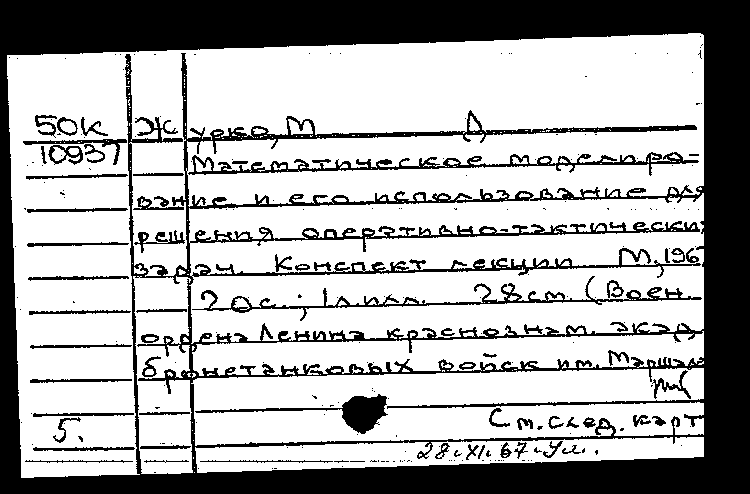 50к Журко, М Д
10937 Математическое моделиро-
вание и его использование для
решения оперативно-тактически
задач. Конспект лекции М, 196
20с.; 1л.илл. 28см. (Воен.
ордена Ленина краснознам. акад
бронетанковых войск им. Маршала
5. См. след. карт
28.XI.67.